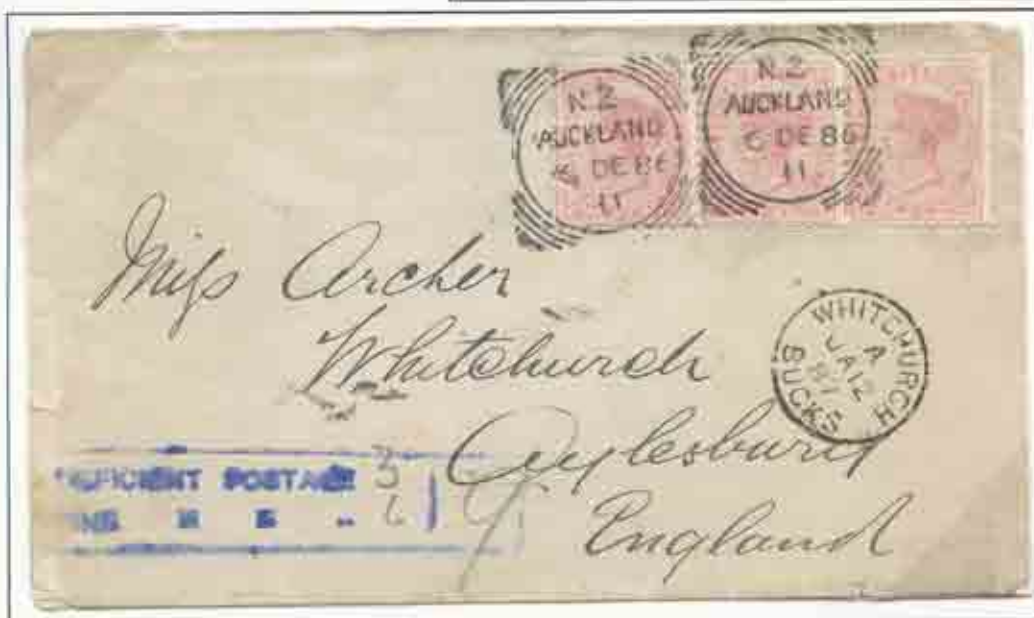 N.Z
AUCKLAND
6 DE 86
11
N.Z
AUCKLAND
6 DE 86
11
Miss Archer
Whitchurch
Aylesbury
England
WHITCHURCH
A
JA 12
87
BUCKS
DEFICIENT POSTAGE 3
FINE 6
9